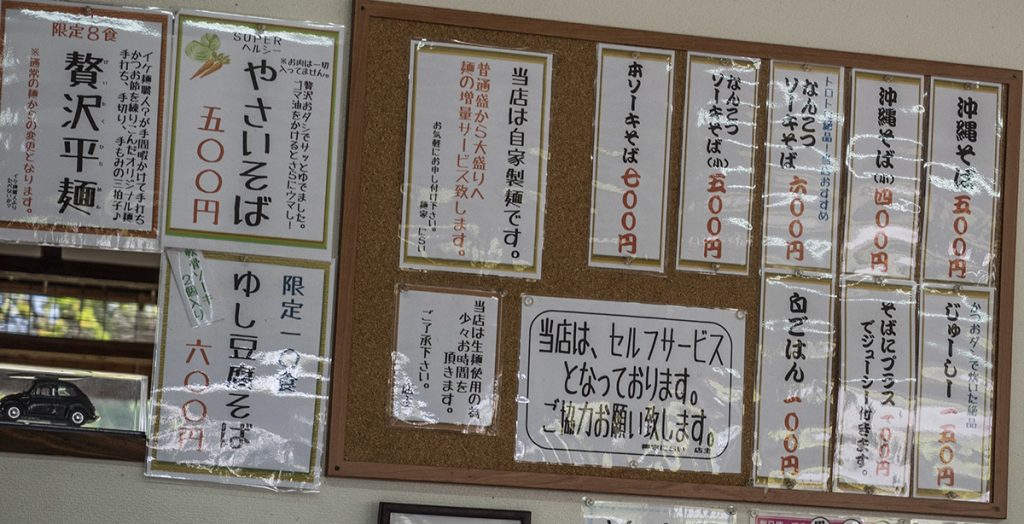 沖縄そば 五〇〇円
沖縄そば(小) 四〇〇円
トロトロ絶品!当店おすすめ
なんこつ
ソーキそば 六〇〇円
なんこつ
ソーキそば(小) 五〇〇円
本ソーキそば 七〇〇円
当店は自家製麺です。
普通盛から大盛りへ
麺の増量サービス致します。
お気軽にお申し付け下さい。
麺家 にらい
かつおダシで炊いた絶品
じゅーしー 一五〇円
そばにプラス 一〇〇円
でジューシー付きます。
白ごはん 一〇〇円
当店は、セルフサービス
となっております。
ご協力お願い致します。
麺家にらい 店主
当店は生麺使用の為
少々お時間を
頂きます。
ご了承下さい。
店主
SUPER
ヘルシー
※お肉は一切
入ってません。
やさいそば
贅沢おダシでサッとゆでました。
ゴマ油をかけるとさらにウマし!
五〇〇円
限定8食
イケ麺職人?が手間暇かけて手打ち
かつお節を練りこんだオリジナル麺
手打ち、手切り、手もみの三拍子♪
贅沢平麺
ぜいたくひらめん
※通常の麺からの変更となります。
限定一〇食
ゆし豆腐そば
六〇〇円